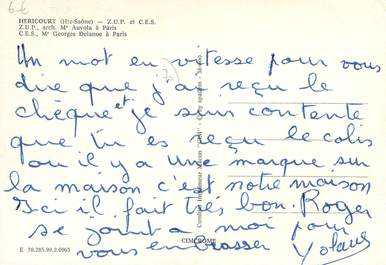 6€
HERICOURT (Hte-Saône) — Z.U.P. et C.E.S.
Z.U.P., arch. Mr Auvola à Paris
C.E.S., Mr Georges Delanoe à Paris
Un mot en vitesse pour vous
dire que j'ai reçu le
chèque et je suis contente
que tu es reçu le colis
ou il y a une marque sur
la maison c'est notre maison
Ici il fait très bon. Roger
se joint a moi pour
vous embrasser Yolande
CIM
E 70.285.99.2.0065